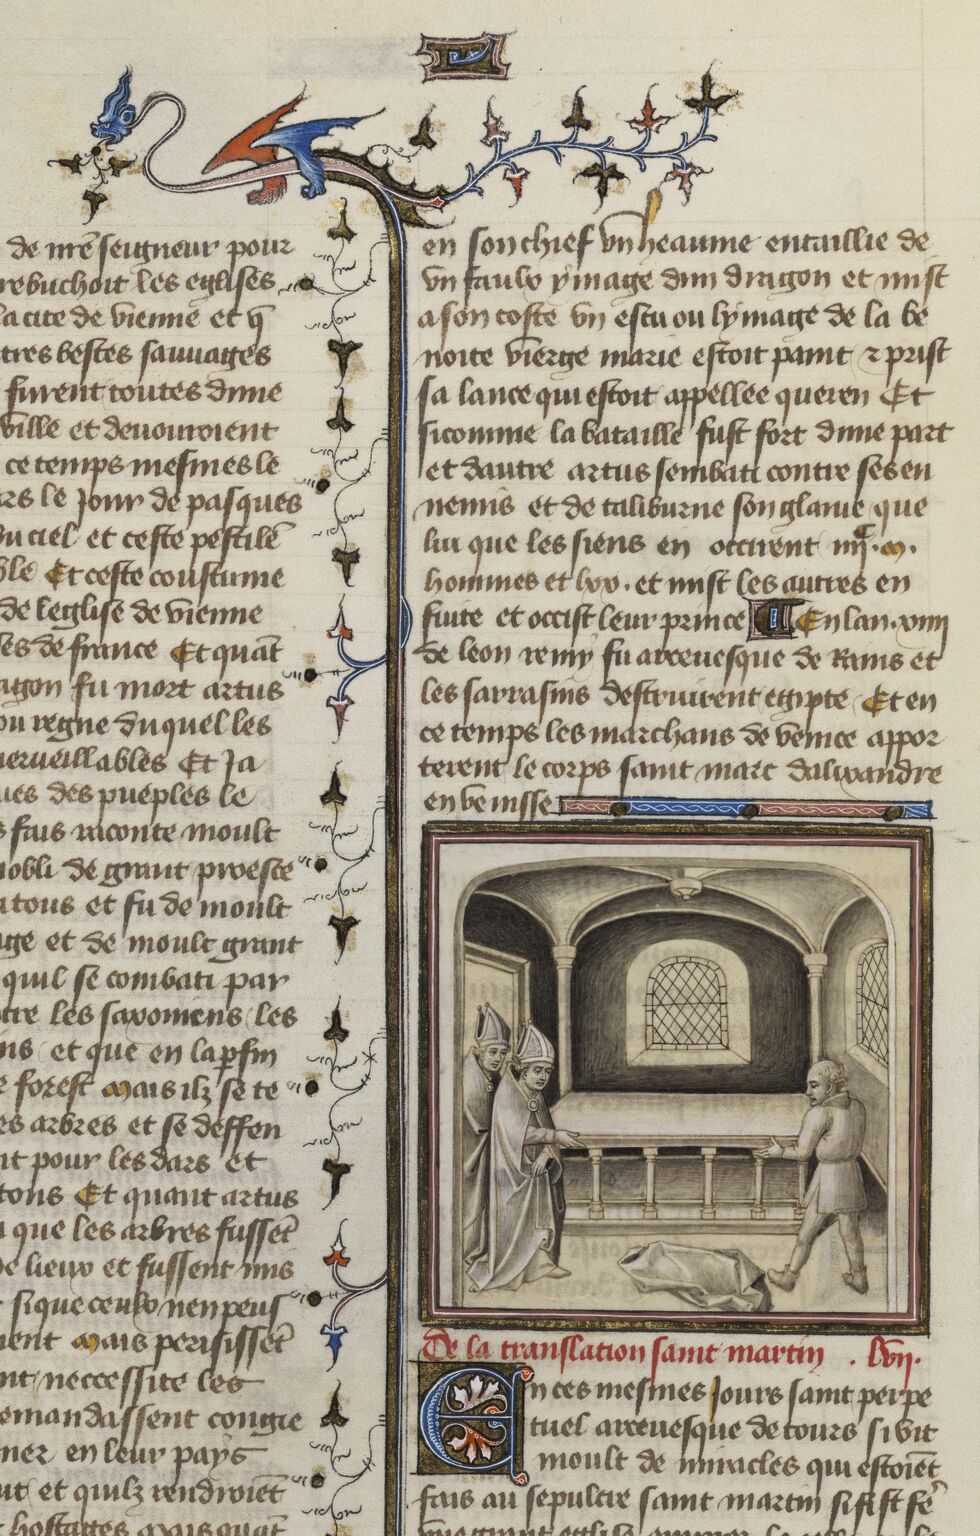 de nr̃e seigneur pour
rebuchoit les eglises
la cite de vienne et q̃
tres bestes sauuages
furent toutes dune
ville et deuouroient
ce temps mesmes le
rs le jour de pasques
du ciel et ceste pestilẽ
ble Et ceste coustume
de leglise de vienne
les de france Et quãt
agon fu mort artus
ou regne duquel les
merueillables Et Ja
ues des pueples le
s fais raconte moult
nobli de grant proesce
a tous et fu de moult
age et de moult grant
quil se combati par
tre les saxoniens les
ns et que en la p̱fin
e forest Mais ilz se te
es arbres et se deffen
nt pour les dars et
tons Et quant artus
a que les arbres fussẽt
de lieux et fussent mis
si que ceulx nen peus
ment Mais perisissẽt
nt neccessite les
emandassent congie
ner en leur pays
ut et quilz rendroiẽt
hostages mais quãt
en son chief vn heaume entaillie de
vn faulx ymage dun dragon et mist
a son coste vn escu ou lymage de la be
noite vierge marie estoit paint ⁊ prist
sa lance qui estoit appellee queren Et
sicomme la bataille fust fort dune part
et dautre artus sembati contre ses en
nemis et de taliburne son glaiue que
lui que les siens en occirent iiii.c M.
hommes et lxx. et mist les autres en
fuite et occist leur prince En lan.xviii
de leon remy fu arceuesque de Rains et
les sarrasins destruirent egipte Et en
ce temps les marchans de venice appor
terent le corps saint marc dalixandre
en venisse
De la translation saint martin . lvii.
En ces mesmes jours saint perpe
tuel arceuesque de tours si vit
moult de miracles qui estoiẽt
fais au sepulcre saint martin si fist fẽ